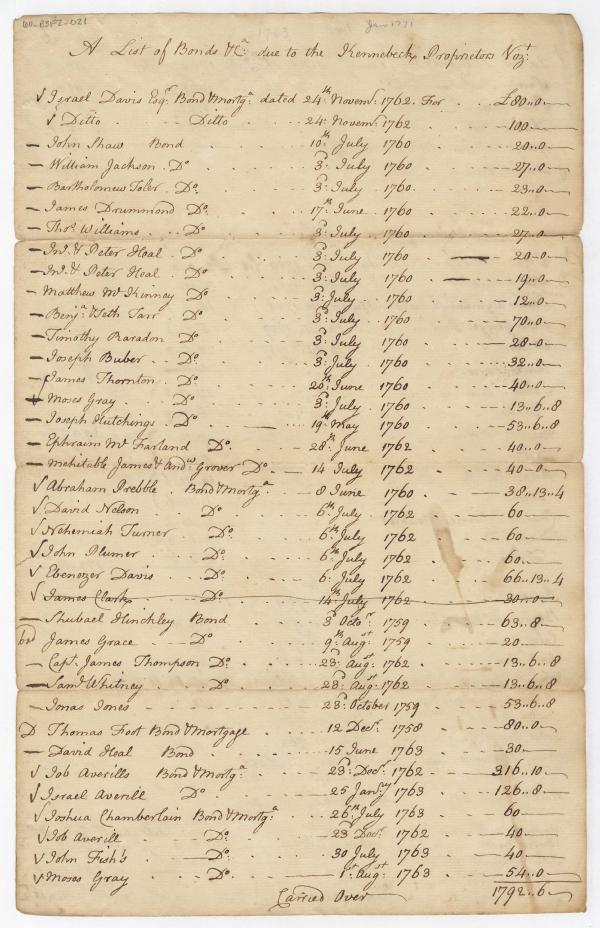 Jan 1771
1763
A List of Bonds &Ca. due to the Kennebeck Proprietors Vozt.
√ Israel Davis Esqr. Bond & Mortga. dated 24th Novemr. 1762. For £80..0
√ Ditto Ditto 24. Novemr. 1762 100
— John Shaw Bond 10th July 1760 20..0
— William Jackson Do 3d. July 1760 27..0
— Bartholomew Toler Do. 3d. July 1760 23..0
— James Drummond Do. 17th June 1760 22..0
— Thos. Williams Do. 3d. July 1760 27..0
— Jno. & Peter Heal Do 3d. July 1760 — 20..0
— Jno. & Peter Heal Do 3d. July 1760 — 19..0
— Matthew Mc Kenney Do 3d. July 1760 12..0
— Benja. & Seth Tarr Do. 3d. July 1760 70..0
— Timothy Raradon Do. 3d. July 1760 28..0
— Joseph Buber Do. 3d. July 1760 32..0
— James Thornton Do. 20th June 1760 40..0
Moses Gray Do. 3d. July 1760 13..6..8
— Joseph Hutchings Do 19th May 1760 53..6..8
— Ephraim Mc Farland Do. 28th June 1762 40..0
— Mehitable James & Andw. Grover Do 14 July 1762 40..0
√ Abraham Prebble Bond & Mortga. 8 June 1760 38..13..4
√ David Nelson Do 6th July 1762 60
√ Nehemiah Turner Do. 6th July 1762 60
√ John Plumer Do. 6th July 1762 60
√ Ebenezer Davis Do. 6. July 1762 66..13..4
√ James Clark Do. 14th July 1762 30..0
— Shubael Hinchley Bond 3d Octor. 1759 63..8
James Grace Do 9th Augst. 1759 20
— Capt. James Thompson Do. 23d. Augst. 1762 13..6..8
— Saml. Whitney Do 23d. Augst. 1762 13..6..8
— Jonas Jones 23d. October 1759 53..6..8
D Thomas Foot Bond & Mortgage 12 Decr. 1758 80..0
— David Heal Bond 15 June 1763 30
√ Job Averills Bond & Mortga. 23d. Decr. 1762 316..10
√ Israel Averill Do 25 Janry 1763 126..8
√ Joshua Chamberlain Bond & Mortga. 26th July 1763 60
√ Job Averill Do. 23d Decr. 1762 40
√ John Fish's Do: 30 July 1763 40
√ Moses Gray Do: 1st Augst. 1763 54..0
Carried Over 1792..6